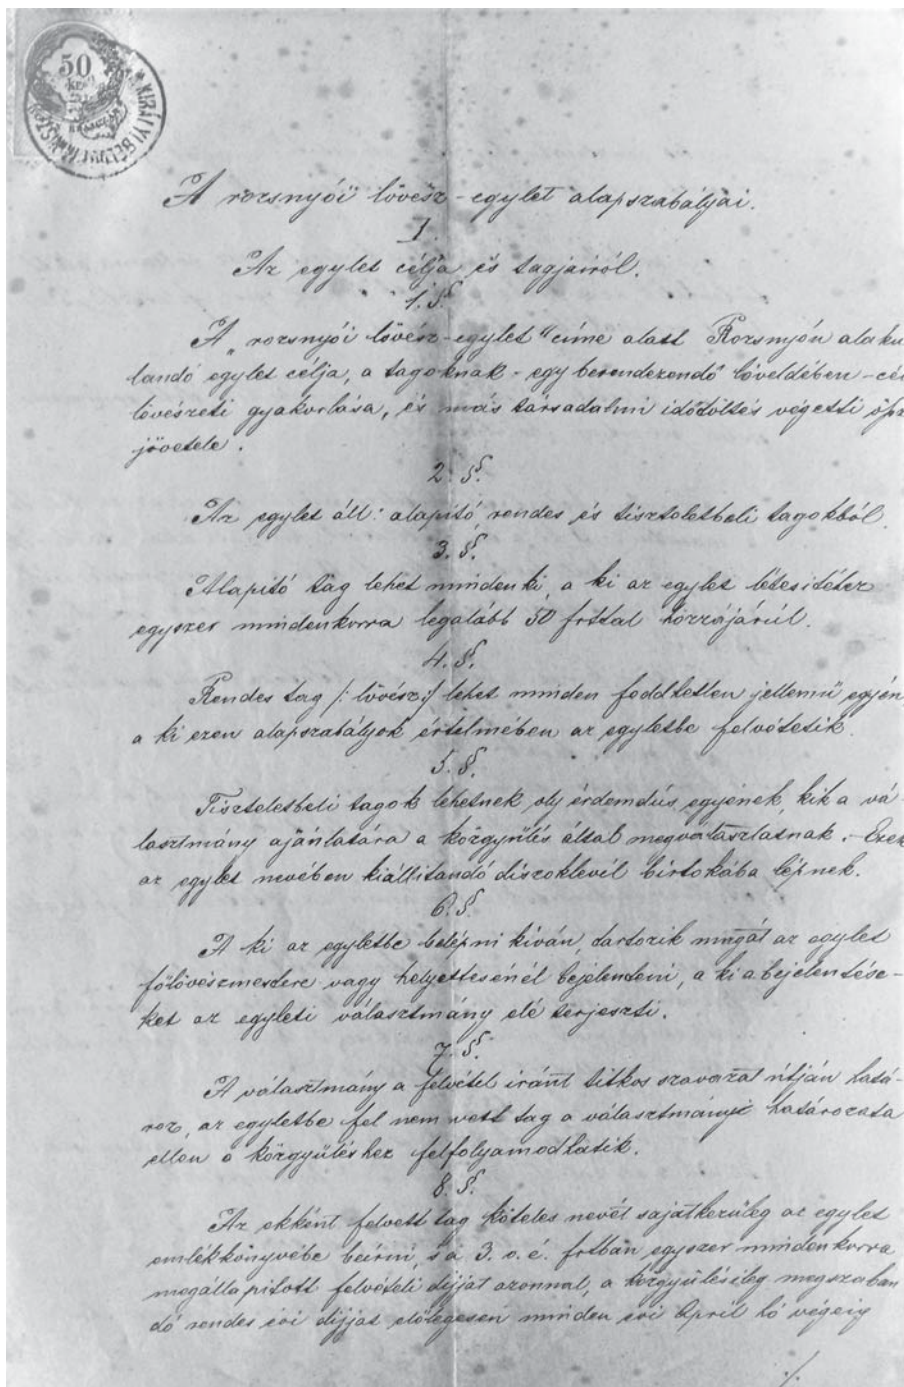 50
KIRÁLYI
A rozsnyói lövész-egylet alapszabályai.
I.
Az egylet célja és tagjairól.
1. §.
A „rozsnyói lövész-egylet" címe alatt Rozsnyón alaku
landó egylet célja, a tagoknak - egy berendezendő löveldében - cél
lövészeti gyakorlása, és más társadalmi időtöltés végetti össz
jövetele.
2. §.
Az egylet áll: alapitó, rendes és tiszteletbeli tagokból.
3. §.
Alapitó tag lehet mindenki, a ki az egylet létesitéséhez
egyszer mindenkorra legalább 50 frttal hozzájárúl.
4. §.
Rendes tag /: lövész :/ lehet minden feddhetlen jellemű egyén,
a ki ezen alapszabályok értelmében az egyletbe felvétetik.
5. §.
Tiszteletbeli tagok lehetnek oly érdemdús egyének, kik a vá-
lasztmány ajánlatára a közgyülés által megválasztatnak. - Ezek
az egylet nevében kiállitandó díszoklevél birtokába lépnek.
6. §.
A ki az egyletbe belépni kíván, tartozik magát az egylet
fölövészmestere vagy helyettesénél bejelenteni, a ki a bejelentése-
ket az egyleti választmány elé terjeszti.
7. §.
A választmány a felvétel iránt titkos szavazat útján hatá-
roz, az egyletbe fel nem vett tag a választmányi határozata
ellen a közgyüléshez felfolyamodhatik.
8. §.
Az ekként felvett tag köteles nevét sajátkezüleg az egylet
emlékkönyvébe beírni, s a 3. o. é. frtban egyszer mindenkorra
megállapitott felvételi díjját azonnal, a közgyülésileg megszaban
dó rendes évi díjját előlegesen minden évi April hó végeig
./.